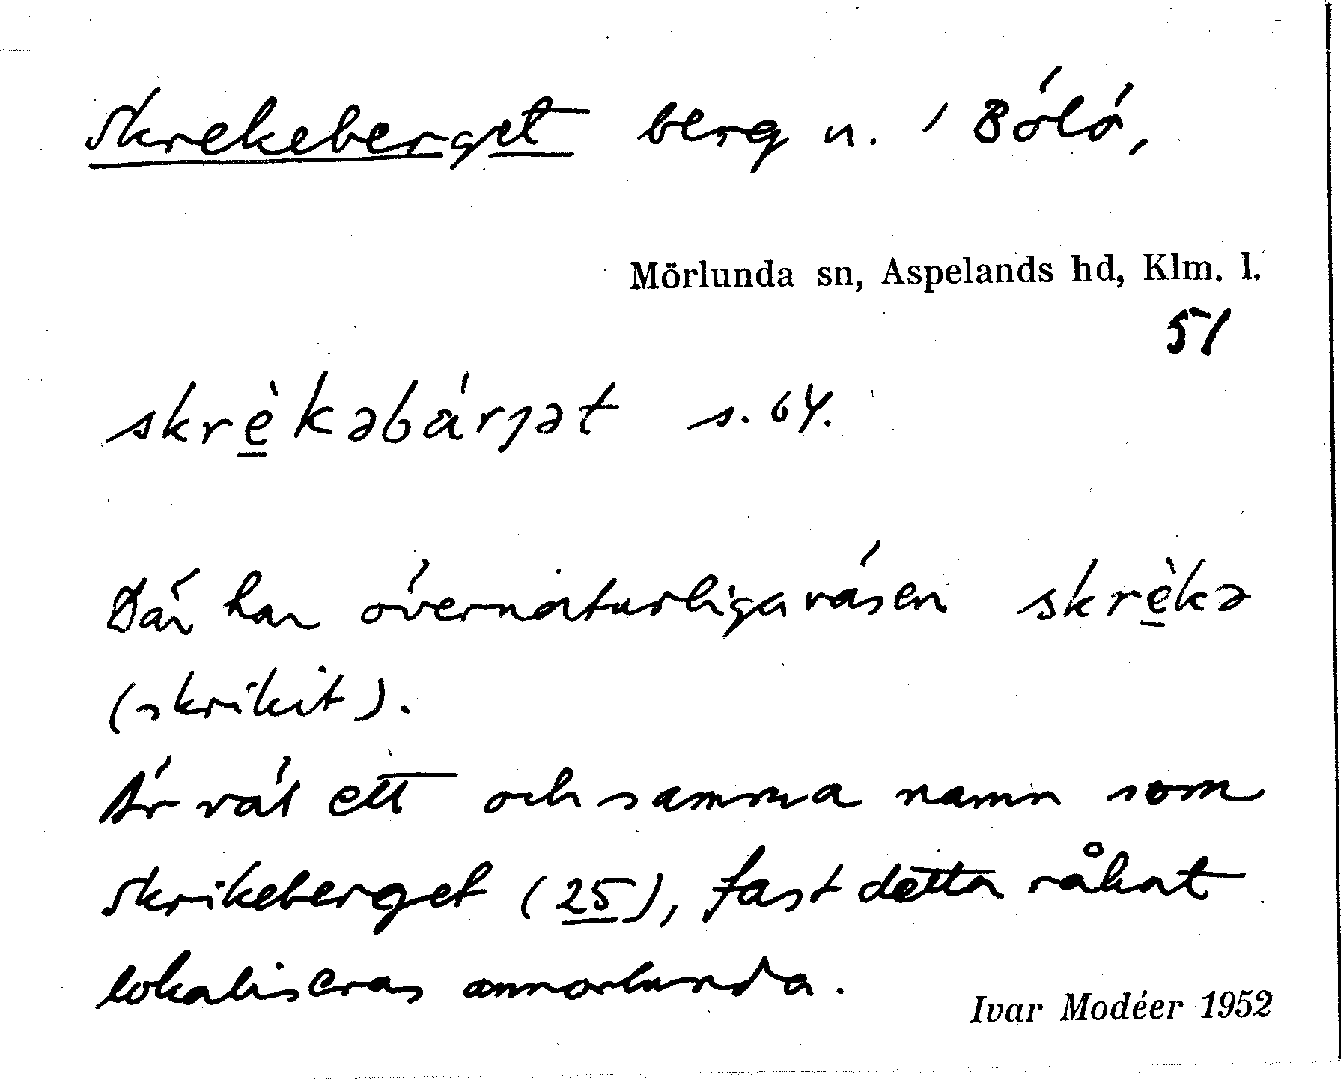 Skrekeberget berg n. 1 Bölö,
Mörlunda sn, Aspelands hd, Klm. l.
51
skrèkəbárjət s. 64.
Där har övernaturliga väsen skrèkə
(skrikit).
Är väl ett och samma namn som
Skrikeberget (25), fast detta råkat
lokaliseras annorlunda.
Ivar Modéer 1952